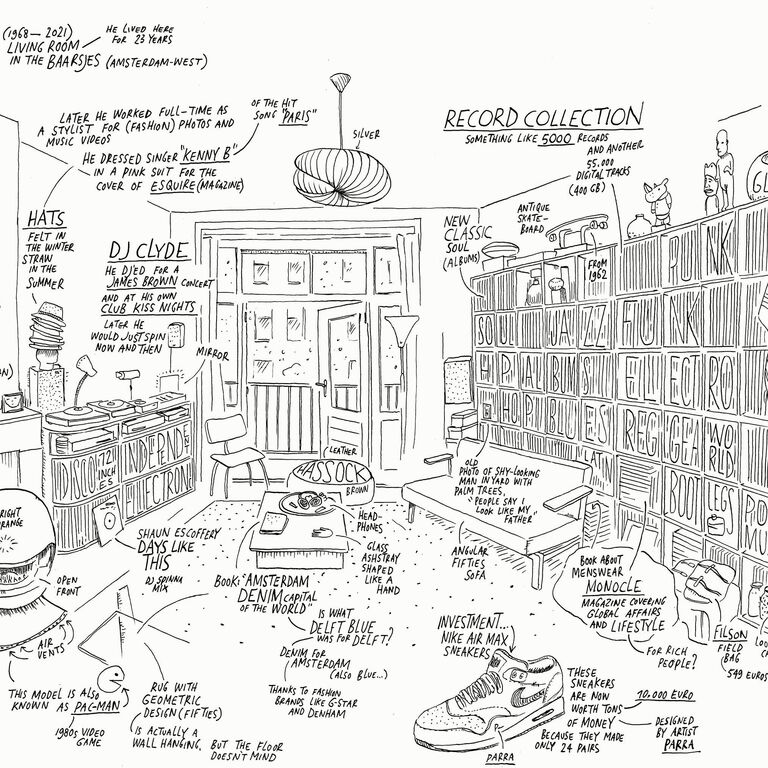 (1968 — 2021)
LIVING ROOM
IN THE BAARSJES (AMSTERDAM-WEST)
HE LIVED HERE
FOR 23 YEARS
LATER HE WORKED FULL-TIME AS
A STYLIST FOR (FASHION) PHOTOS AND
MUSIC VIDEOS
OF THE HIT
SONG "PARIS"
HE DRESSED SINGER "KENNY B"
IN A PINK SUIT FOR THE
COVER OF ESQUIRE (MAGAZINE)
SILVER
RECORD COLLECTION
SOMETHING LIKE 5000 RECORDS
AND ANOTHER
55.000
DIGITAL TRACKS
(400 GB)
HATS
FELT IN
THE WINTER
STRAW
IN THE
SUMMER
DJ CLYDE
HE DJ'ED FOR A
JAMES BROWN CONCERT
AND AT HIS OWN
CLUB KISS NIGHTS
LATER HE
WOULD JUST SPIN
NOW AND THEN
MIRROR
NEW
CLASSIC
SOUL
(ALBUMS)
ANTIQUE
SKATE-
BOARD
FROM
1962
GL
PUNK
SOUL JAZZ FUNK
HIP ALBUMS ELECTRO
HOP BLUES REGGEA WORLD
LATIN
BOOTLEGS
DISCO 12 INCHES
INDEPENDENT
ELECTRON
(LEATHER)
HASSOCK
BROWN
HEAD-
PHONES
GLASS
ASHSTRAY
SHAPED
LIKE A
HAND
OLD
PHOTO OF SHY-LOOKING
MAN IN YARD WITH
PALM TREES,
"PEOPLE SAY I
LOOK LIKE MY"
FATHER
ANGULAR
FIFTIES
SOFA
RIGHT
RANGE
OPEN
FRONT
AIR
VENTS
THIS MODEL IS ALSO
KNOWN AS PAC-MAN
1980s VIDEO
GAME
SHAUN ESCOFFERY
DAYS LIKE
THIS
DJ SPINNA
MIX
BOOK: "AMSTERDAM
DENIM CAPITAL
OF THE WORLD"
IS WHAT
DELFT BLUE
WAS FOR DELFT?
DENIM FOR
AMSTERDAM
(ALSO BLUE...)
THANKS TO FASHION
BRANDS LIKE G-STAR
AND DENHAM
RUG WITH
GEOMETRIC
DESIGN (FIFTIES)
IS ACTUALLY A
WALL HANGING,
BUT THE FLOOR
DOESN'T MIND
INVESTMENT...
NIKE AIR MAX
SNEAKERS
PARRA
THESE
SNEAKERS
ARE NOW
WORTH TONS
OF MONEY
BECAUSE THEY MADE
ONLY 24 PAIRS
10.000 EURO
DESIGNED
BY ARTIST
PARRA
BOOK ABOUT
MENSWEAR
MONOCLE
MAGAZINE COVERING
GLOBAL AFFAIRS
AND LIFESTYLE
FOR RICH
PEOPLE?
FILSON
FIELD
BAG
549 EUROS